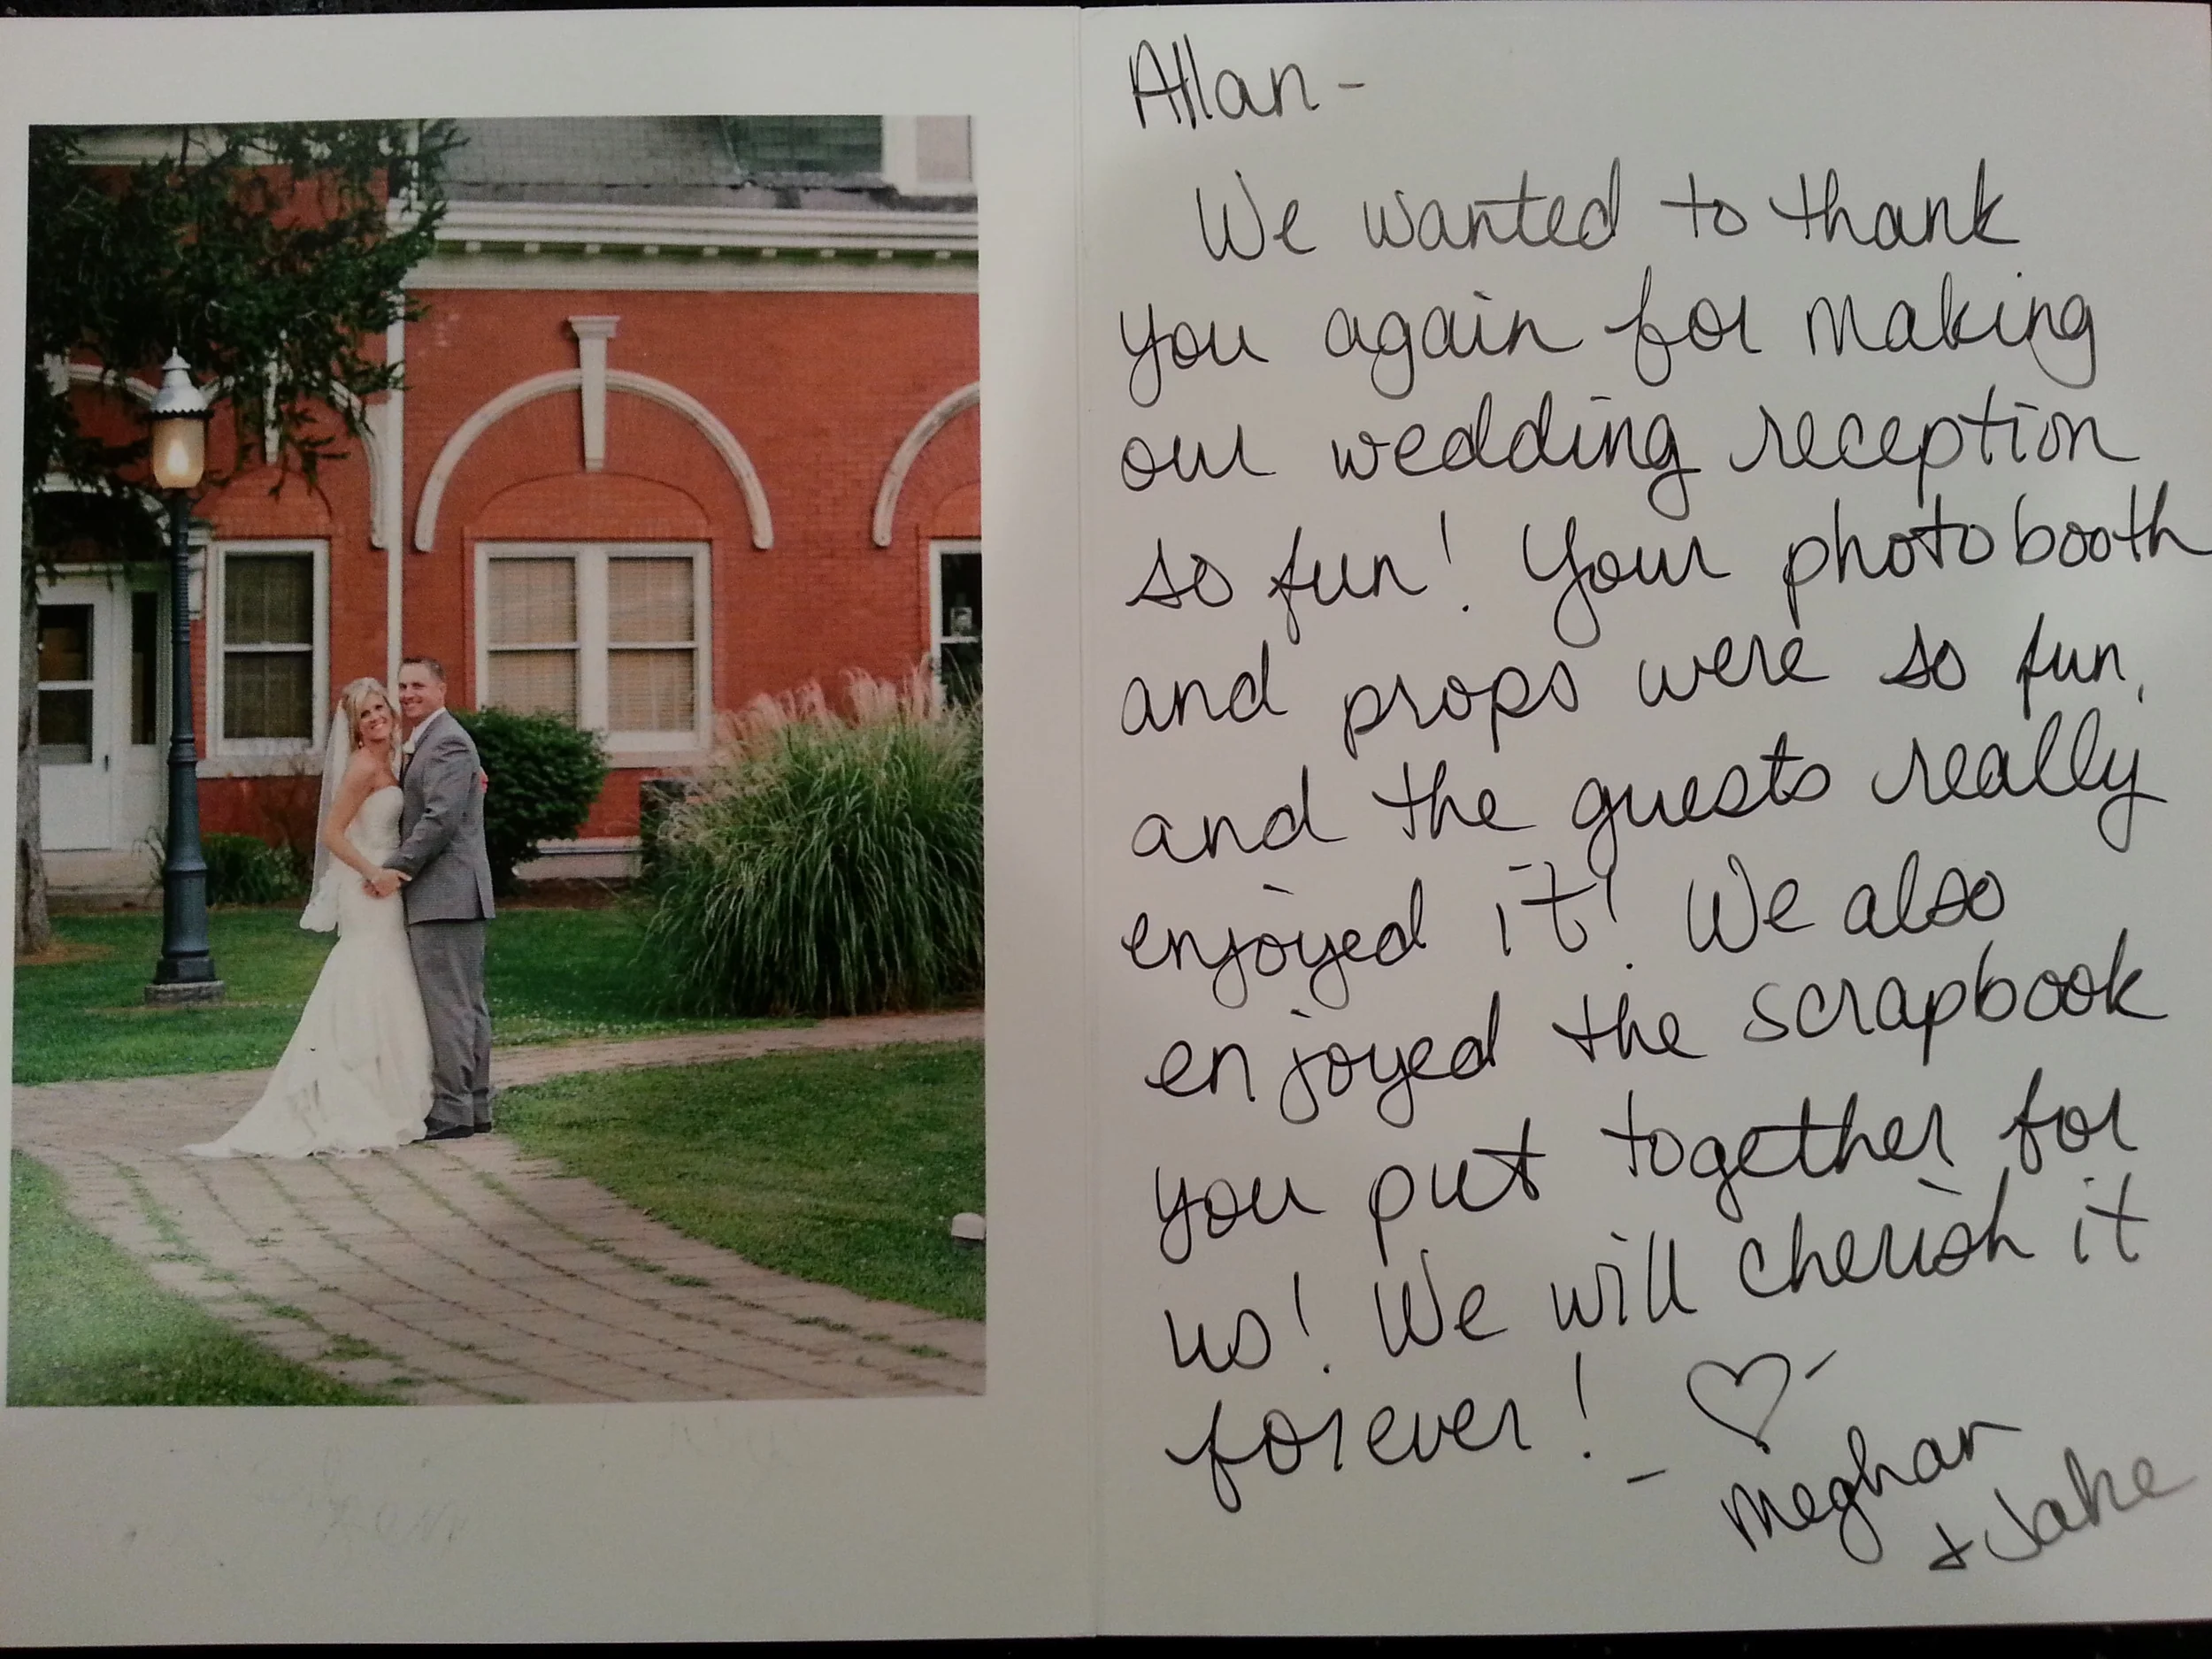 Allan -
We wanted to thank
you again for making
our wedding reception
so fun! Your photobooth
and props were so fun,
and the guests really
enjoyed it! We also
enjoyed the scrapbook
you put together for
us! We will cherish it
forever! ♡-
- Meghan
+ Jake